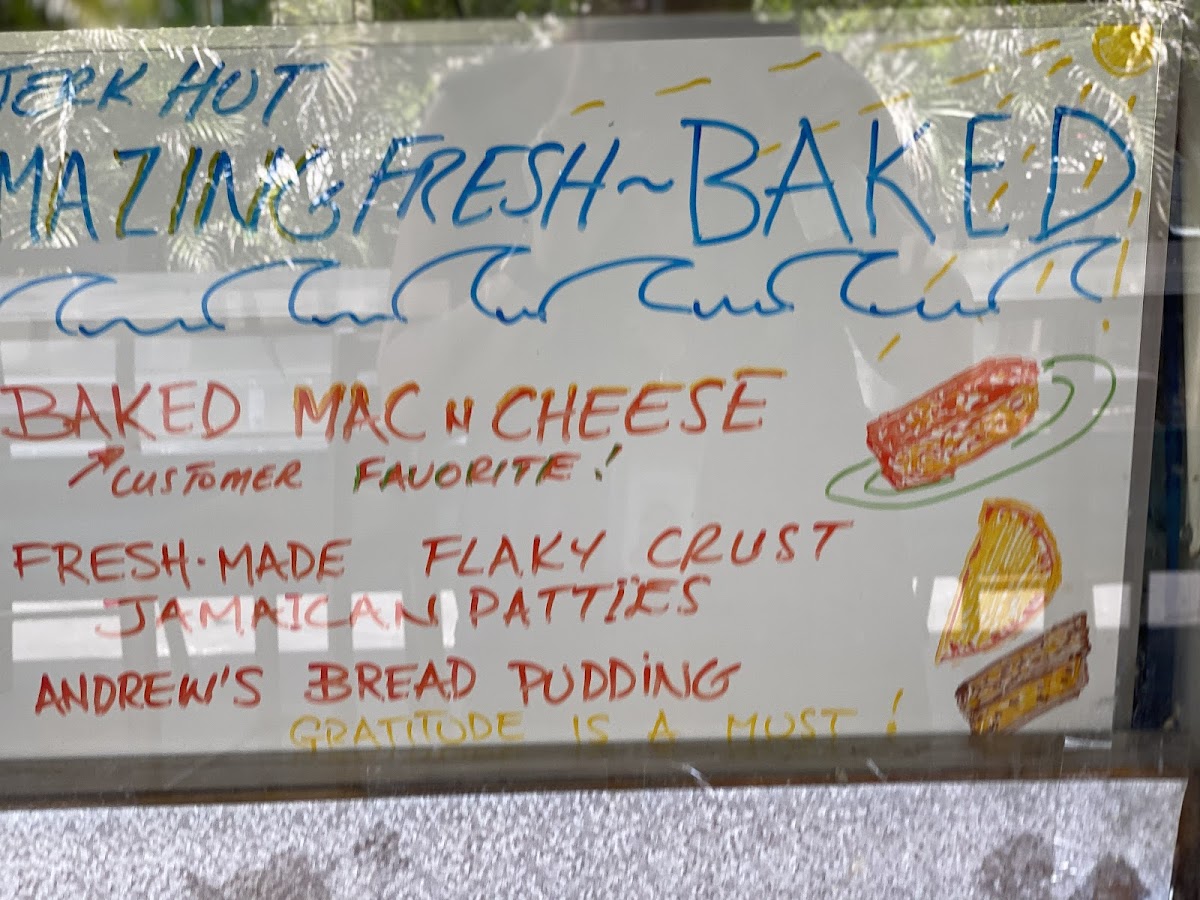 JERK HUT
MAZING FRESH~BAKED
BAKED MAC N CHEESE
CUSTOMER FAVORITE!
FRESH-MADE FLAKY CRUST
JAMAICAN PATTIES
ANDREW'S BREAD PUDDING
GRATITUDE IS A MUST!